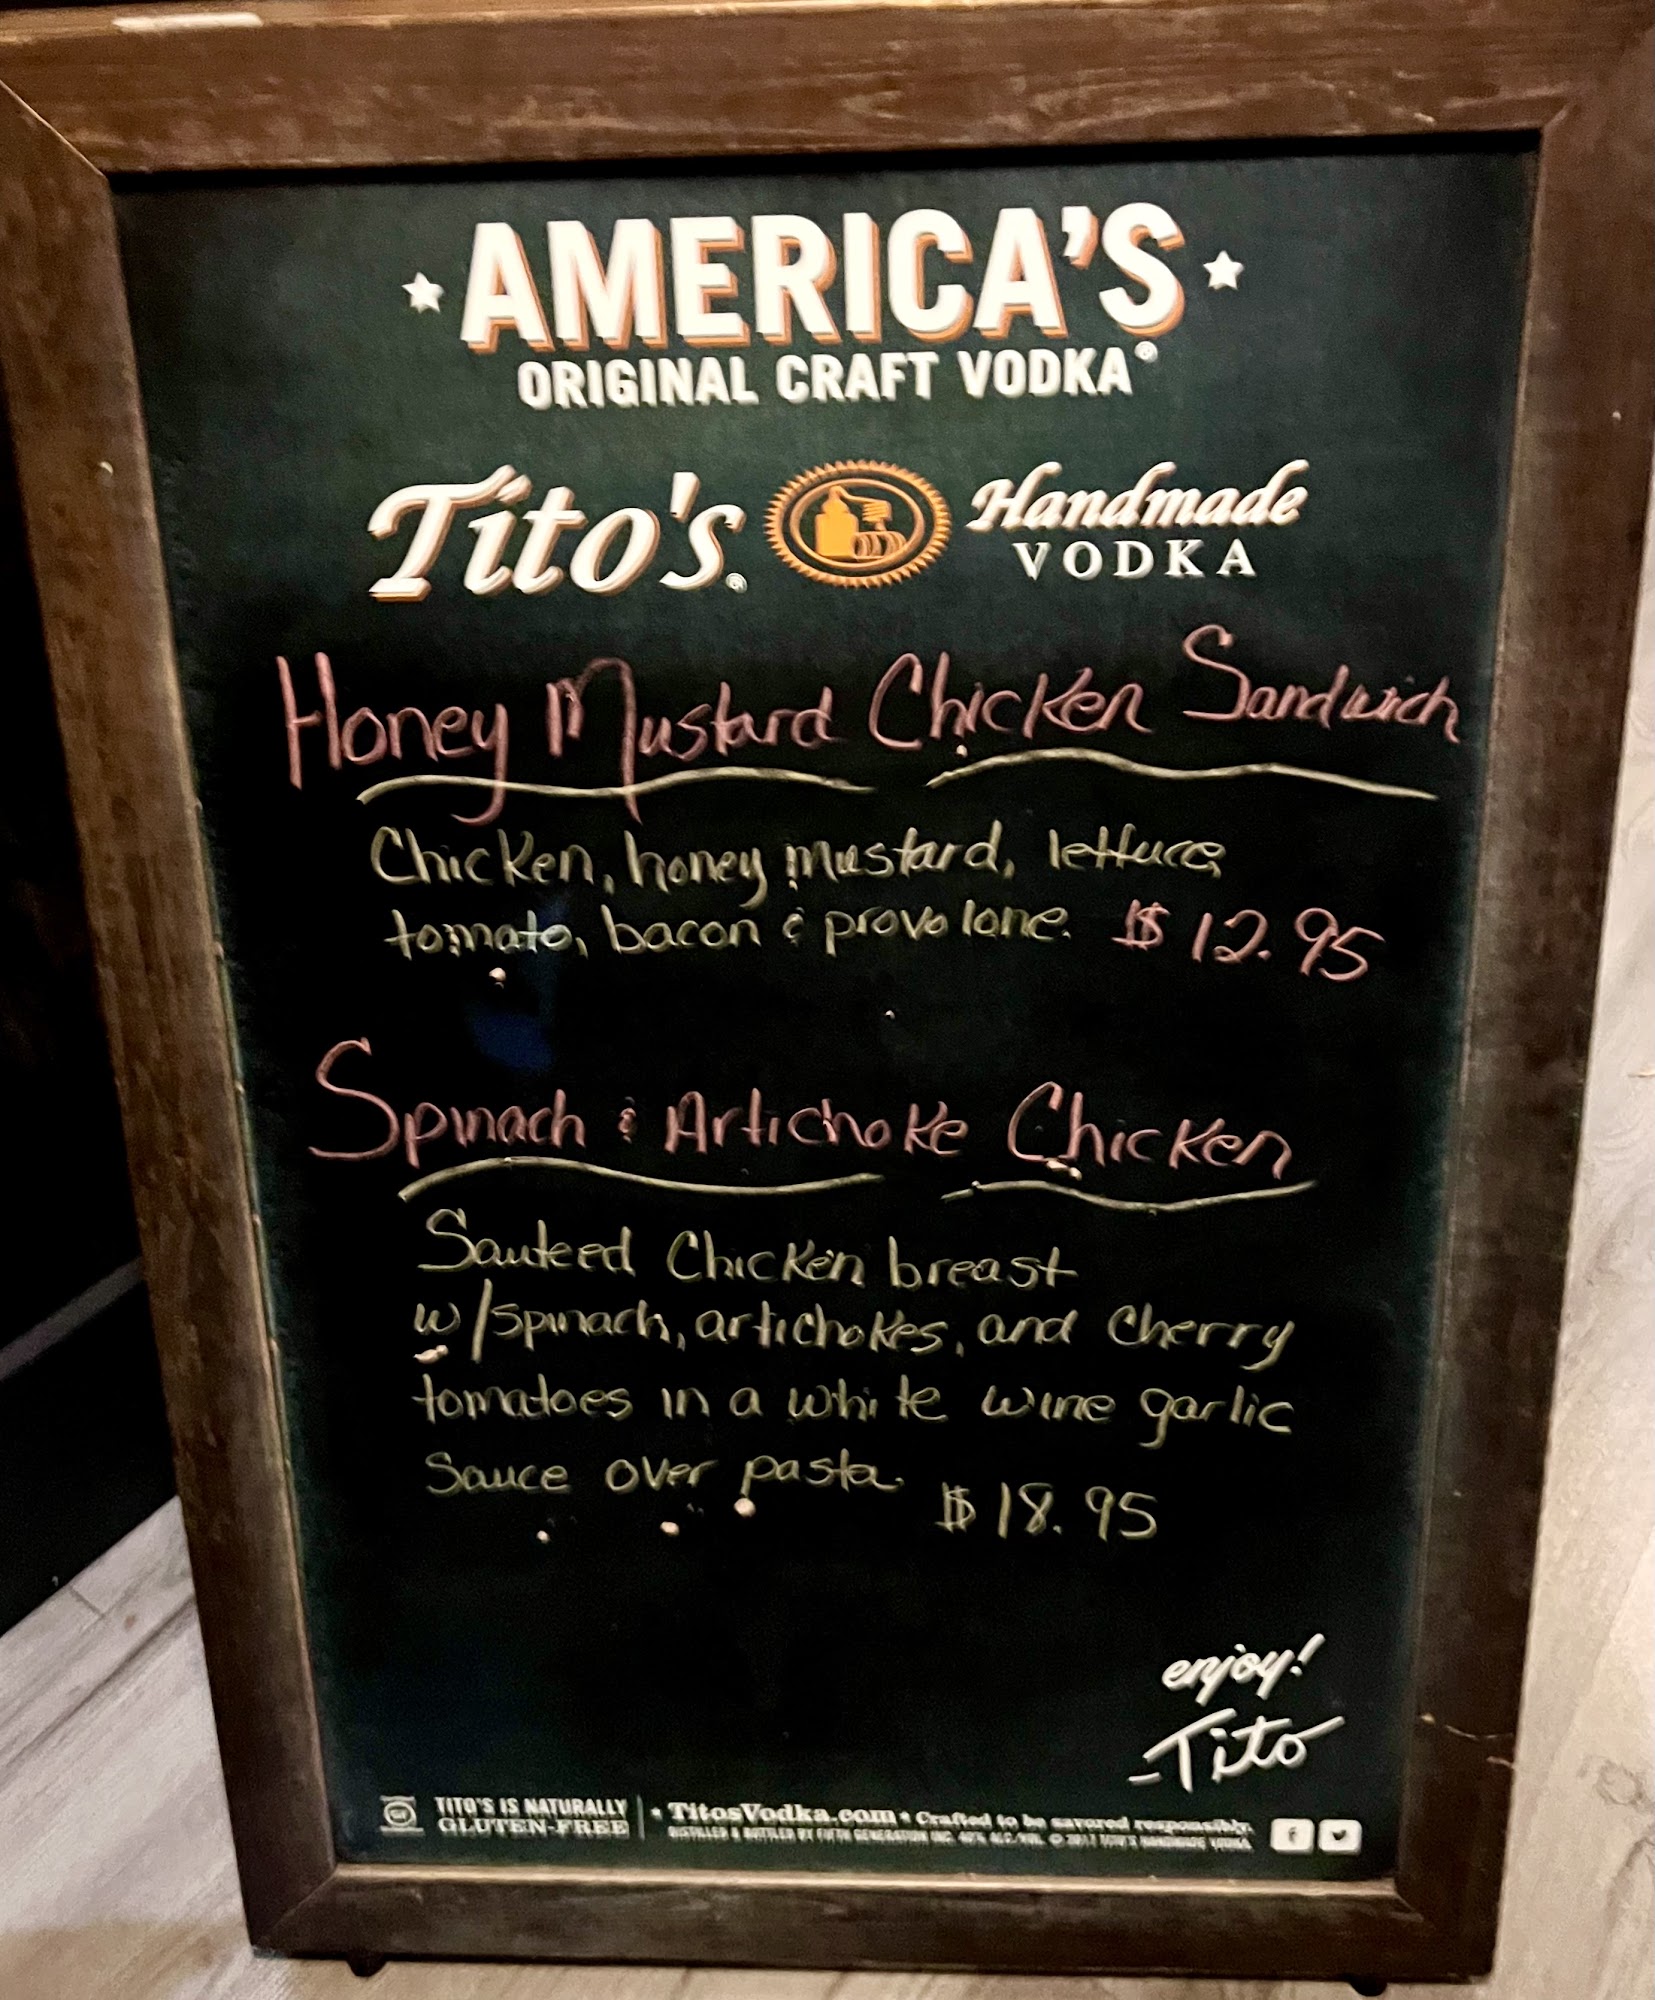 AMERICA'S
ORIGINAL CRAFT VODKA®
Tito's® Handmade
VODKA
Honey Mustard Chicken Sandwich
Chicken, honey mustard, lettuce,
tomato, bacon & provolone. $12.95
Spinach & Artichoke Chicken
Sauteed Chicken breast
w/spinach, artichokes, and Cherry
tomatoes in a white wine garlic
Sauce over pasta. $18.95
enjoy!
-Tito
GF TITO'S IS NATURALLY
GLUTEN-FREE
• TitosVodka.com • Crafted to be savored responsibly.
DISTILLED & BOTTLED BY FIFTH GENERATION INC. 40% ALC./VOL. © 2017 TITO'S HANDMADE VODKA